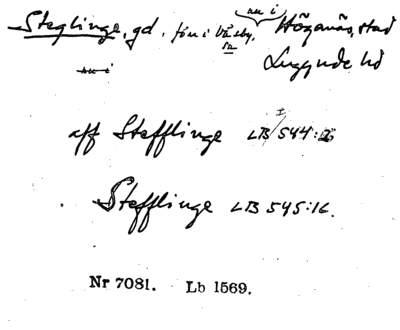 nu i
Steglinge, gd. förr i Väsby, Höganäs, stad
sn
nu i Luggude hd
aff Stefflinge LB I/544:
Stefflinge LB 545:16.
Nr 7081. Lb 1569.